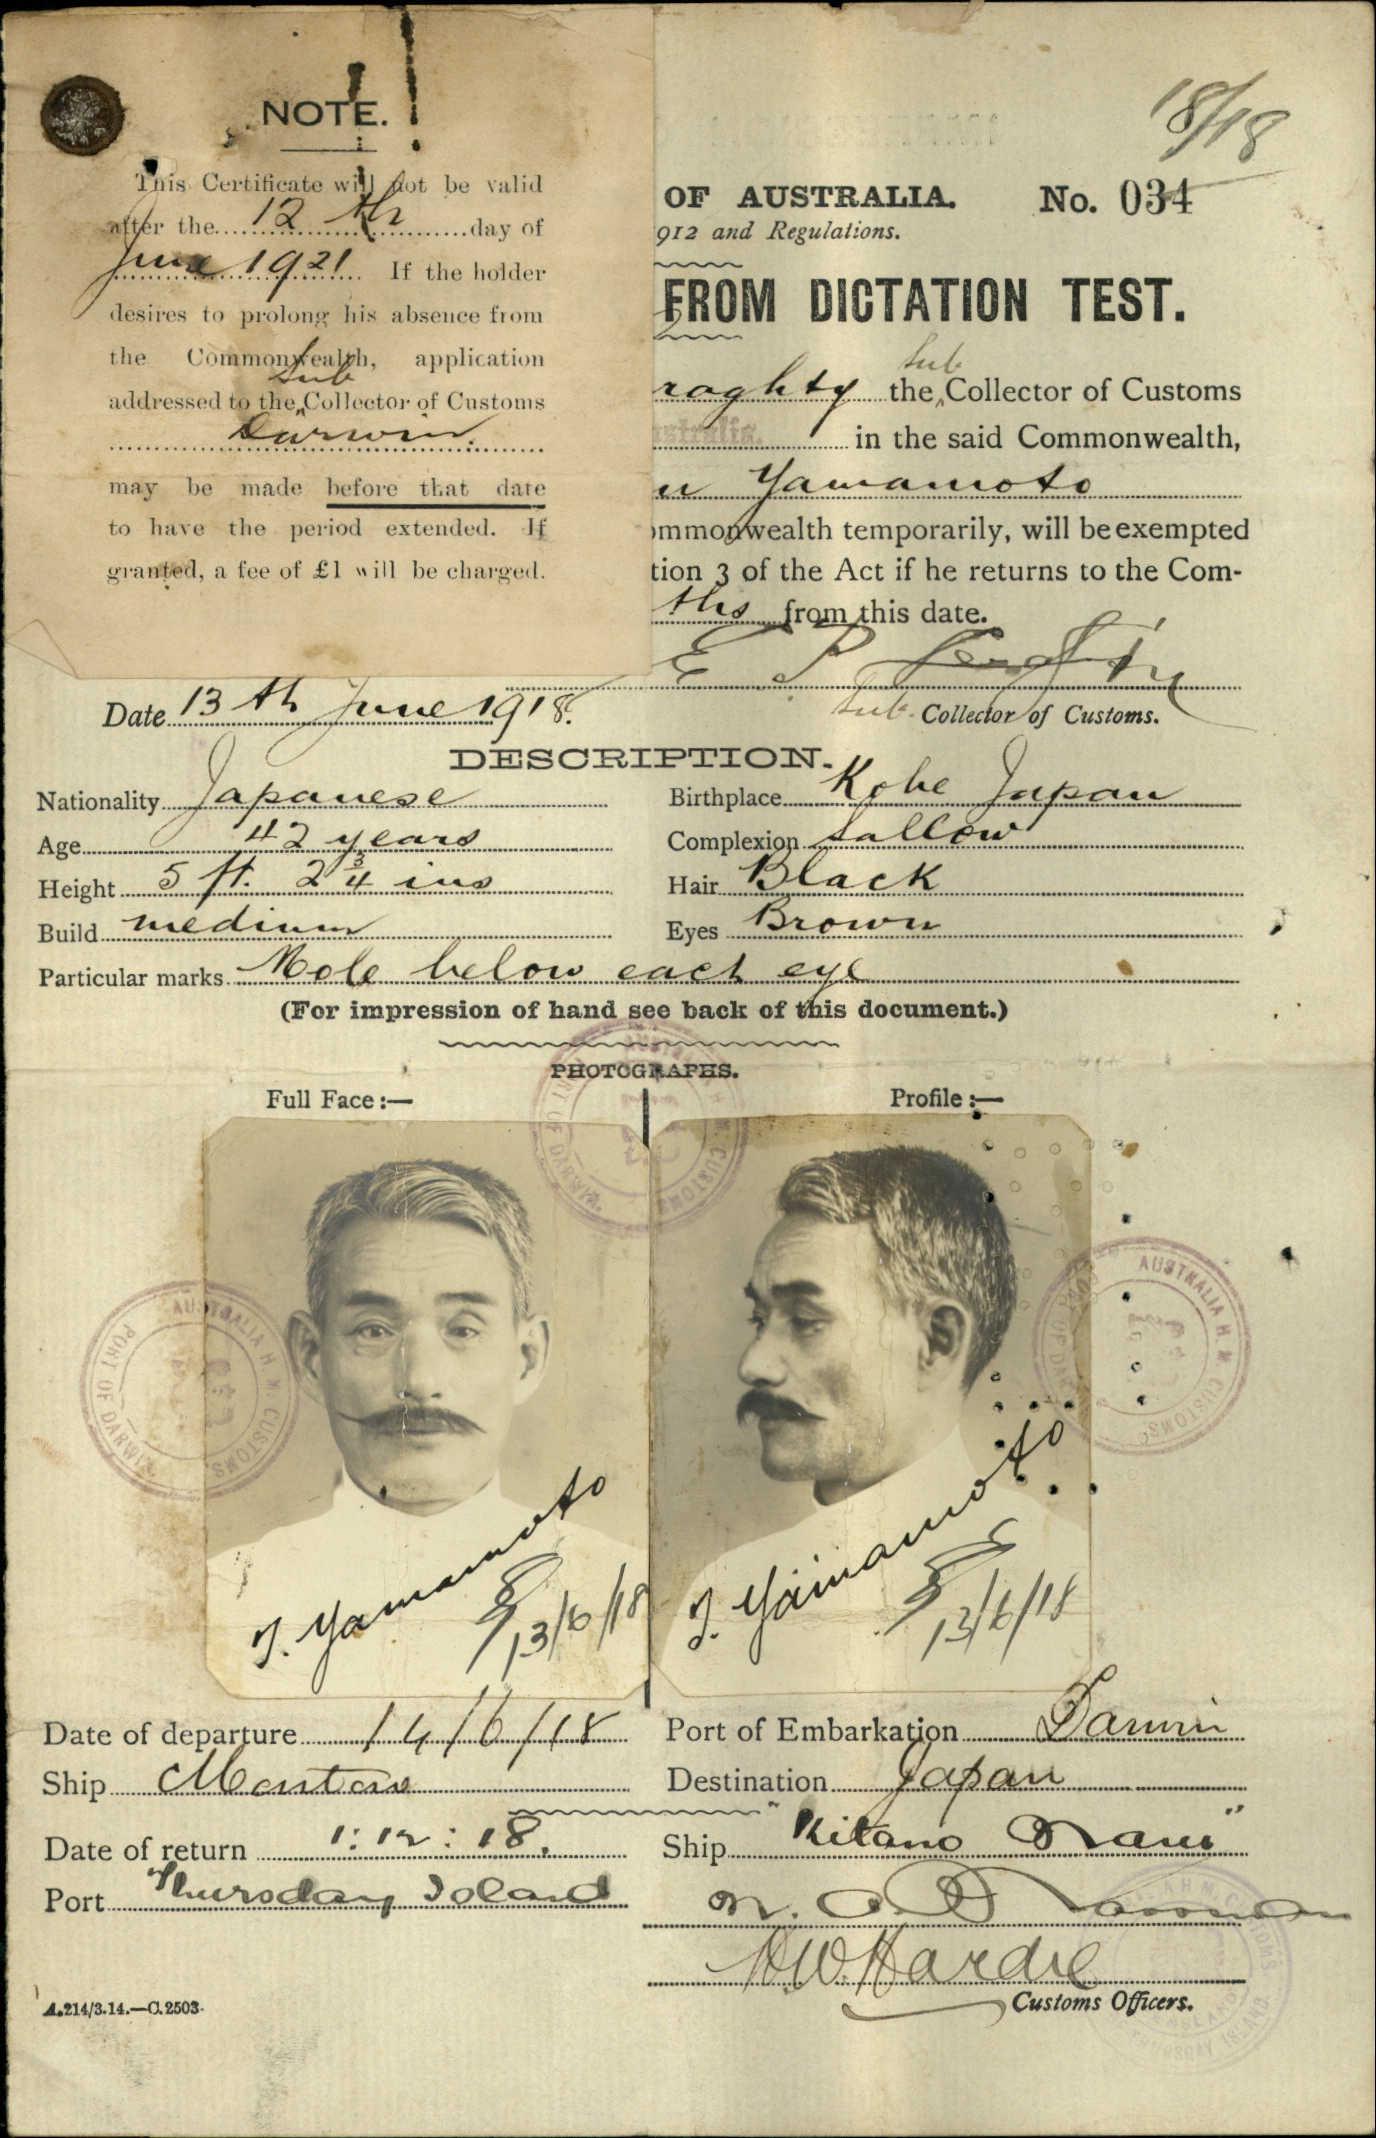 NOTE.
This Certificate will not be valid
after the 12th day of
June 1921. If the holder
desires to prolong his absence from
the Commonwealth, application
Sub
addressed to the Collector of Customs
Darwin.
may be made before that date
to have the period extended. If
granted, a fee of £1 will be charged.
18/18
OF AUSTRALIA. No. 034
912 and Regulations.
FROM DICTATION TEST.
Sub
raghty the Collector of Customs
stralia. in the said Commonwealth,
u Yamamoto
ommonwealth temporarily, will be exempted
tion 3 of the Act if he returns to the Com-
ths from this date.
Date 13th June 1918. Sub. Collector of Customs.
DESCRIPTION.
Nationality Japanese Birthplace Kobe Japan
Age 42 years Complexion Sallow
Height 5 ft. 2 3/4 ins Hair Black
Build medium Eyes Brown
Particular marks Mole below each eye
(For impression of hand see back of this document.)
PHOTOGRAPHS.
Full Face:— Profile:—
AUSTRALIA H. M. CUSTOMS PORT OF DARWIN
AUSTRALIA H. M. CUSTOMS PORT OF DARWIN
AUSTRALIA H. M. CUSTOMS
T. Yamamoto T. Yamamoto
13/6/18 13/6/18
Date of departure 14/6/18 Port of Embarkation Darwin
Ship Montoro Destination Japan
Date of return 1:12:18. Ship "Kitano Maru"
Port Thursday Island
H.W. Hardie
Customs Officers.
THURSDAY ISLAND
A.214/3.14.—C.2503.